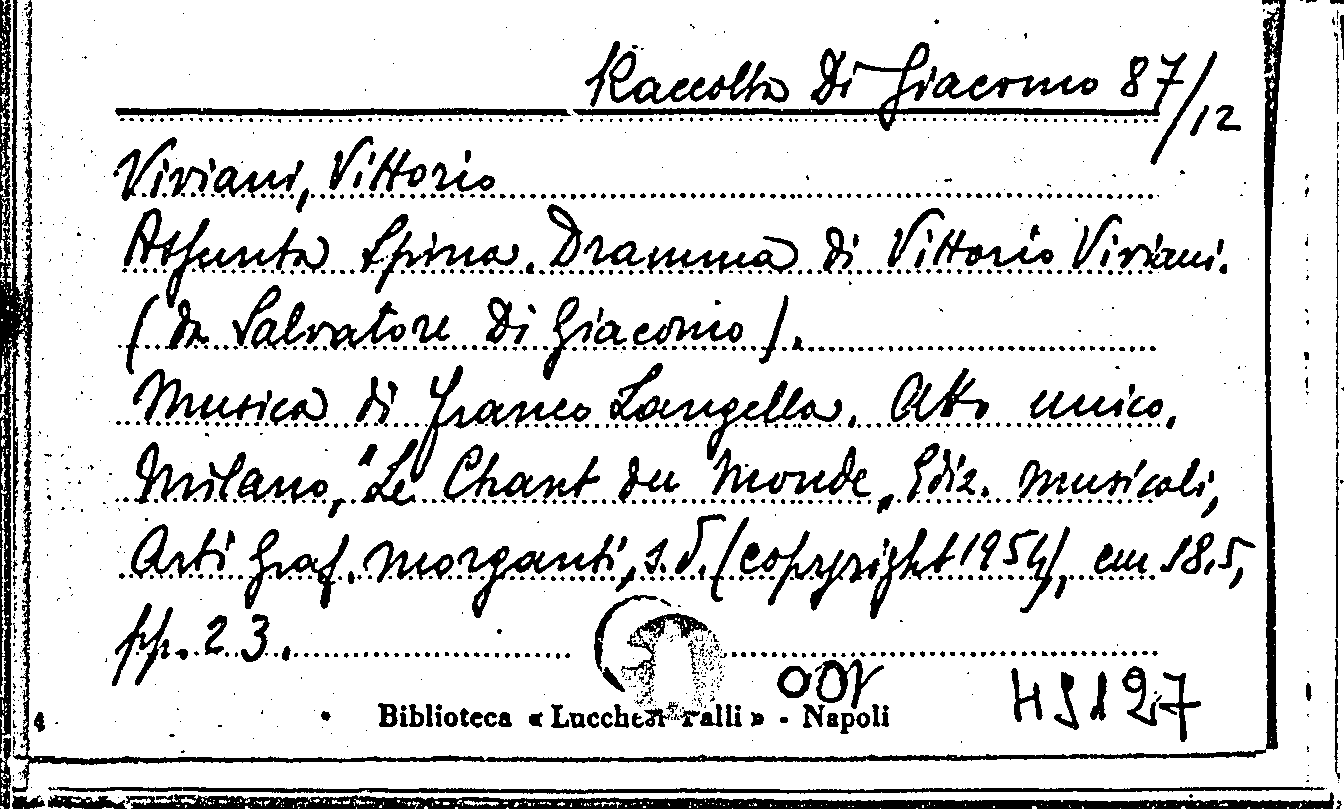 Raccolta Di Giacomo 87/12
Viviani, Vittorio
Assunta Spina. Dramma di Vittorio Viviani.
(da Salvatore Di Giacomo).
Musica di Franco Langella. Atto unico.
Milano, "Le Chant du Monde" Ediz. Musicali,
Arti Graf. Morganti, s.d. (copyright 1954), cm 18.5,
pp. 23.
Biblioteca « Lucchesi Palli » - Napoli
4